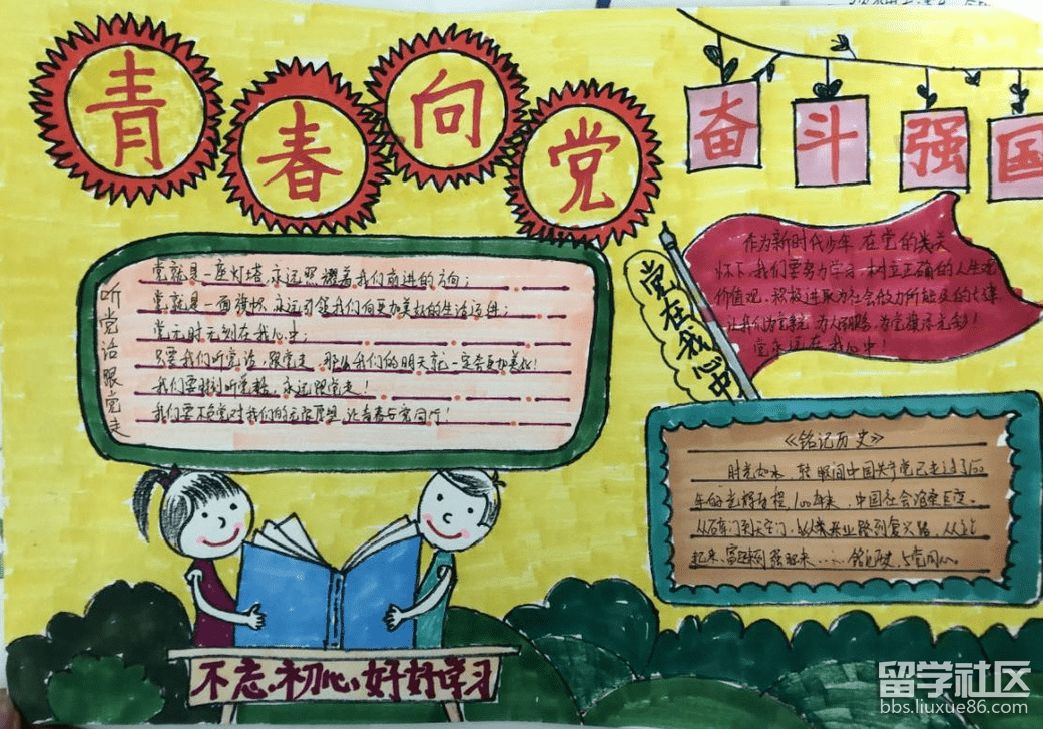 青春向党
奋斗强国
听党话跟党走
党就是一座灯塔,永远照耀着我们前进的方向;
党就是一面旗帜,永远引领我们向更加美好的生活迈进;
党无时无刻在我心中;
只要我们听党话、跟党走,那么我们的明天就一定会更加美好!
我们要做到听党话,永远跟党走!
我们要不负党对我们的无限厚望,让青春与党同行!
党在我心中
作为新时代少年,在党的关
怀下,我们要努力学习,树立正确的人生观
价值观,积极进取为社会做力所能及的
让我们为党 为人 为党 !
党永远在我心中!
《铭记历史》
时光如水,转眼间中国共产党已走过了100
年的光辉 程,100年来,中国社会沧桑巨变。
从石库门到天安门,从兴业路到复兴路,从站
起来、富起来到强起来……铭记历史,与党同心。
不忘初心,好好学习
留学社区
bbs.liuxue86.com